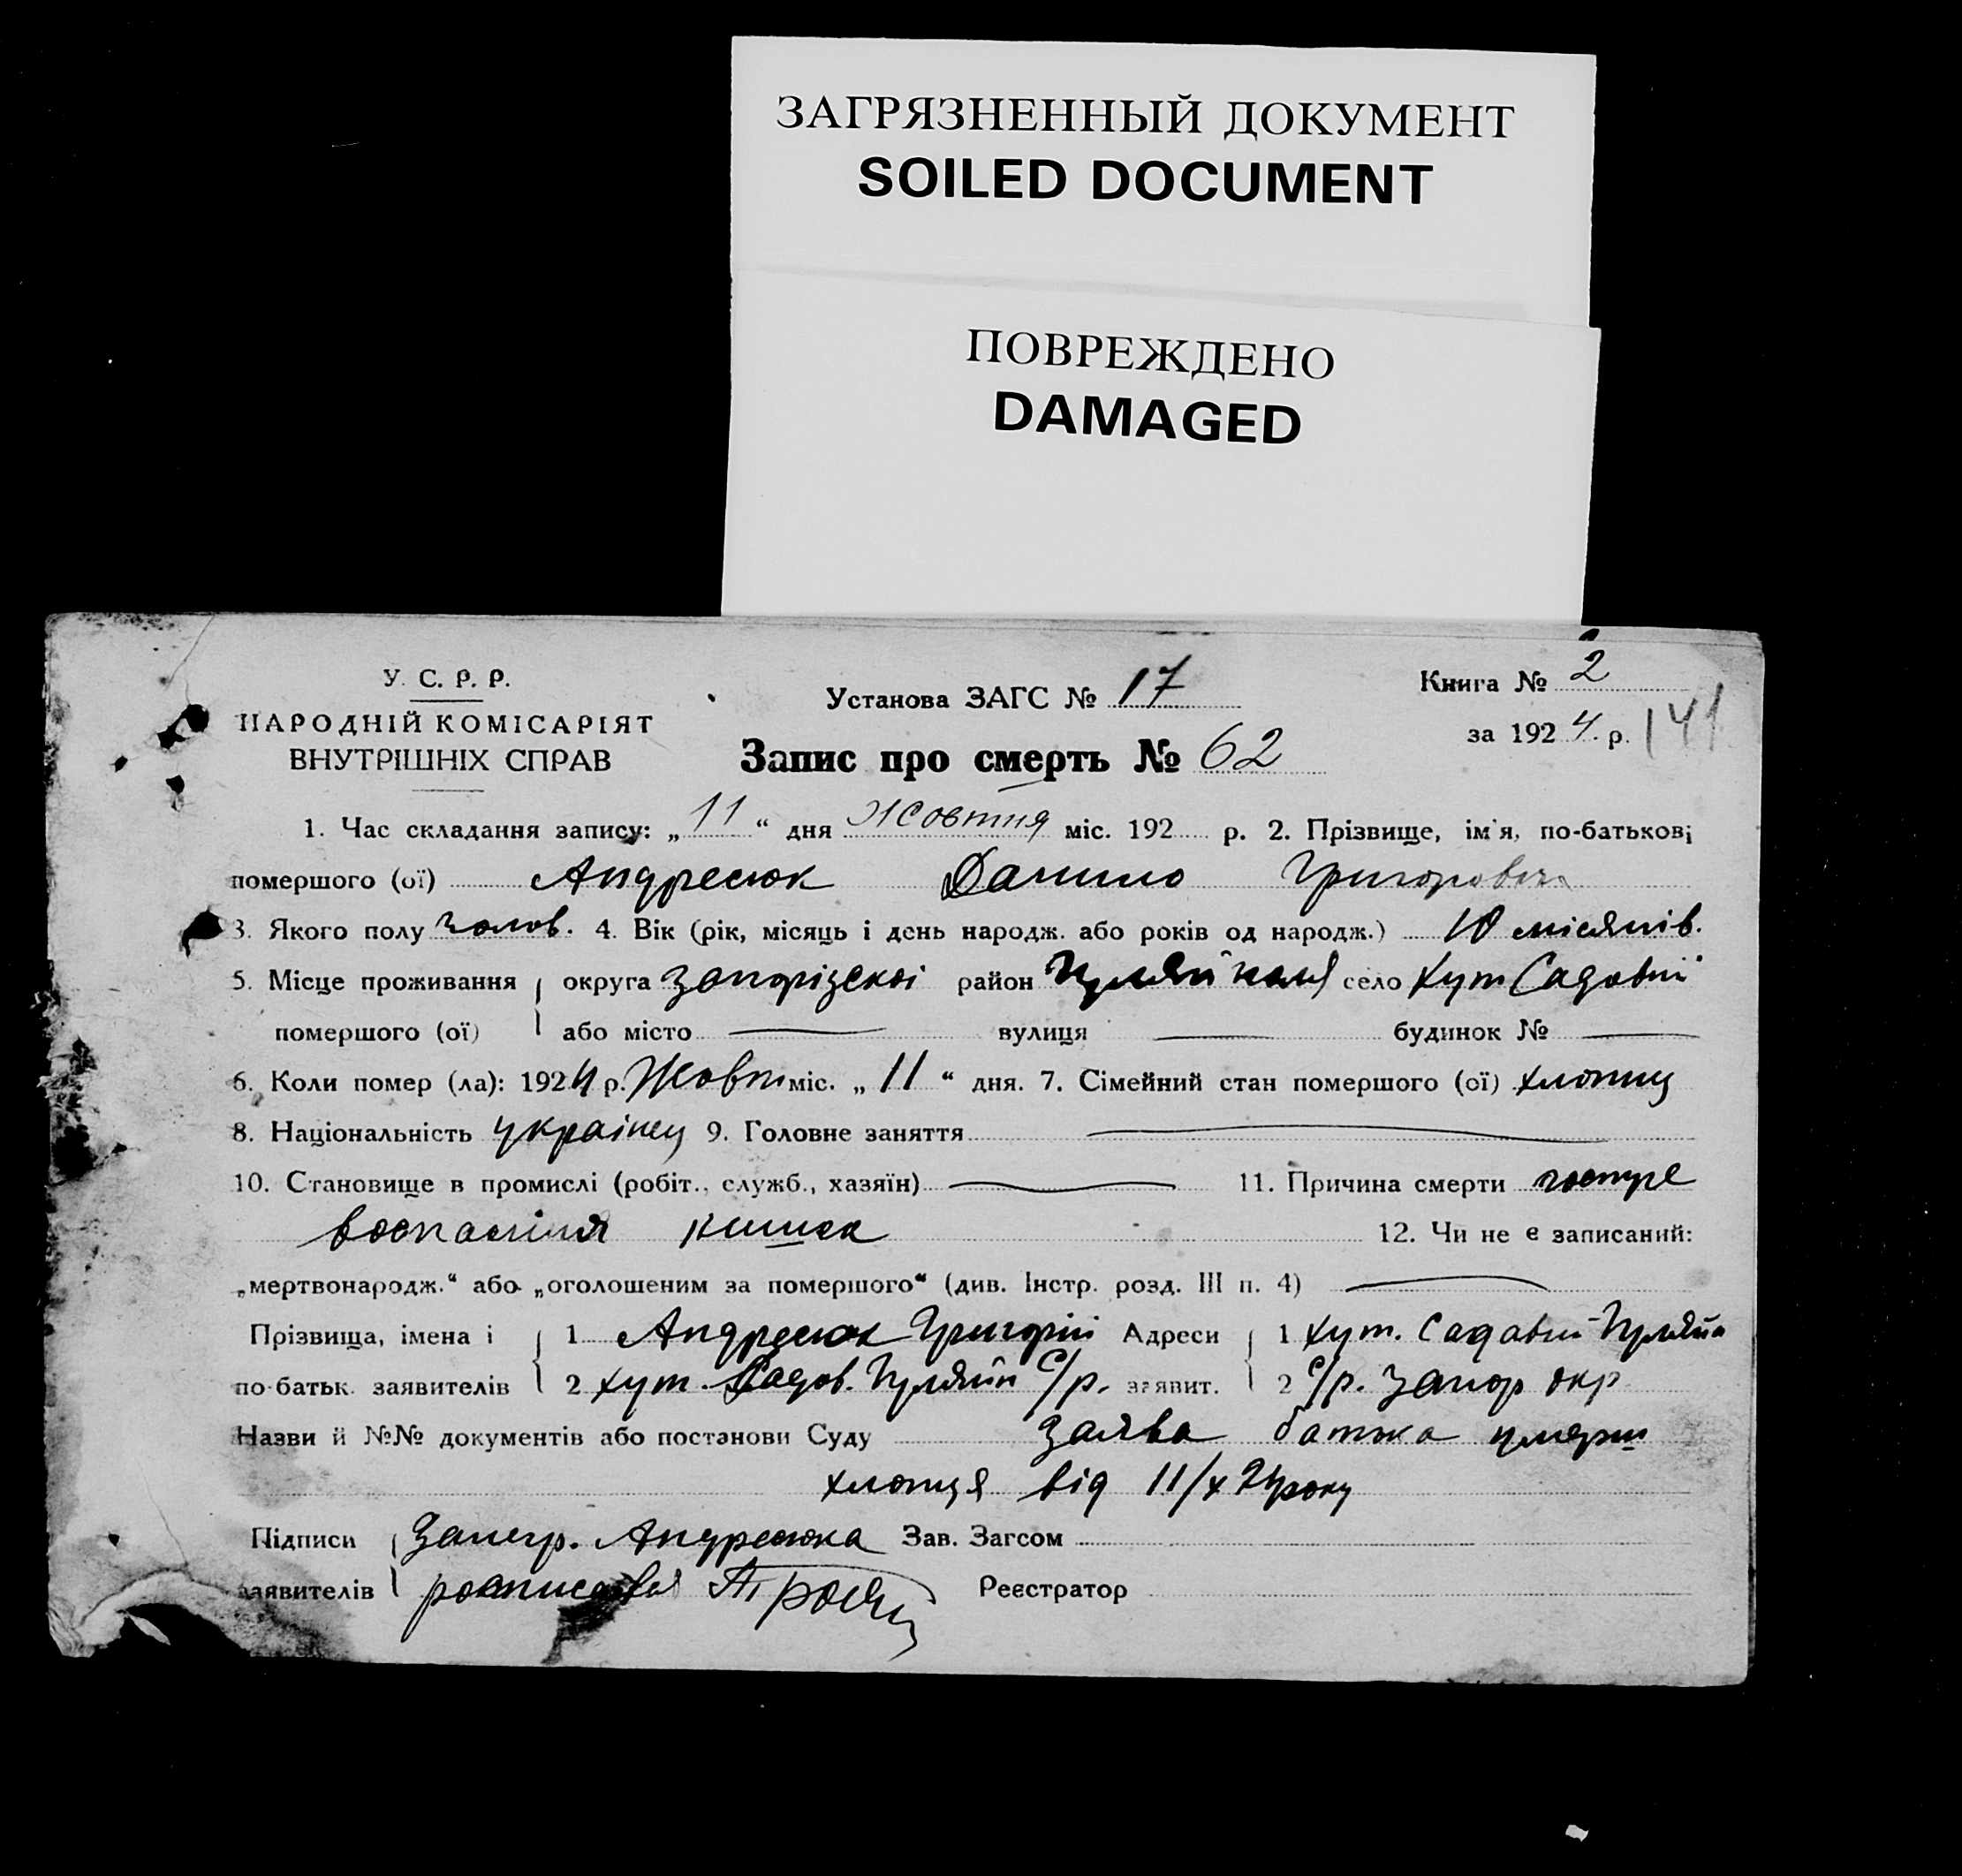 ЗАГРЯЗНЕННЫЙ ДОКУМЕНТ
SOILED DOCUMENT
ПОВРЕЖДЕНО
DAMAGED
У. С. Р. Р.
НАРОДНІЙ КОМІСАРІЯТ
ВНУТРІШНІХ СПРАВ
Установа ЗАГС № 17
Книга № 2
за 1924 р. 141
Запис про смерть № 62
1. Час складання запису: „11“ дня Жовтня міс. 192 р. 2. Прізвище, ім'я, по-батькові
помершого (ої) Андресюк Данило Григорович
3. Якого полу чолов. 4. Вік (рік, місяць і день народж. або років од народж.) 10 місяців.
5. Місце проживання округа Запорізскої район Гуляйполя село Хут Садовий
помершого (ої) або місто — вулиця — будинок № —
6. Коли помер (ла): 1924 р. Жовт міс. „11“ дня. 7. Сімейний стан помершого (ої) хлопец
8. Національність українец 9. Головне заняття —
10. Становище в промислі (робіт., служб., хазяїн) — 11. Причина смерти гостре
воспаління кишек 12. Чи не є записаний:
„мертвонародж.“ або „оголошеним за помершого“ (див. Інстр. розд. III п. 4) —
Прізвища, імена і 1 Андресюк Григорій Адреси 1 хут. Садовий Гуляйп
по-батьк. заявителів 2 хут. Садов. Гуляйп С/р. заявит. 2 С/р. Запор окр
Назви й №№ документів або постанови Суду заява батька умерш
хлопця від 11/X 24 року
Підписи Занегр. Андресюка Зав. Загсом
заявителів росписався Реєстратор